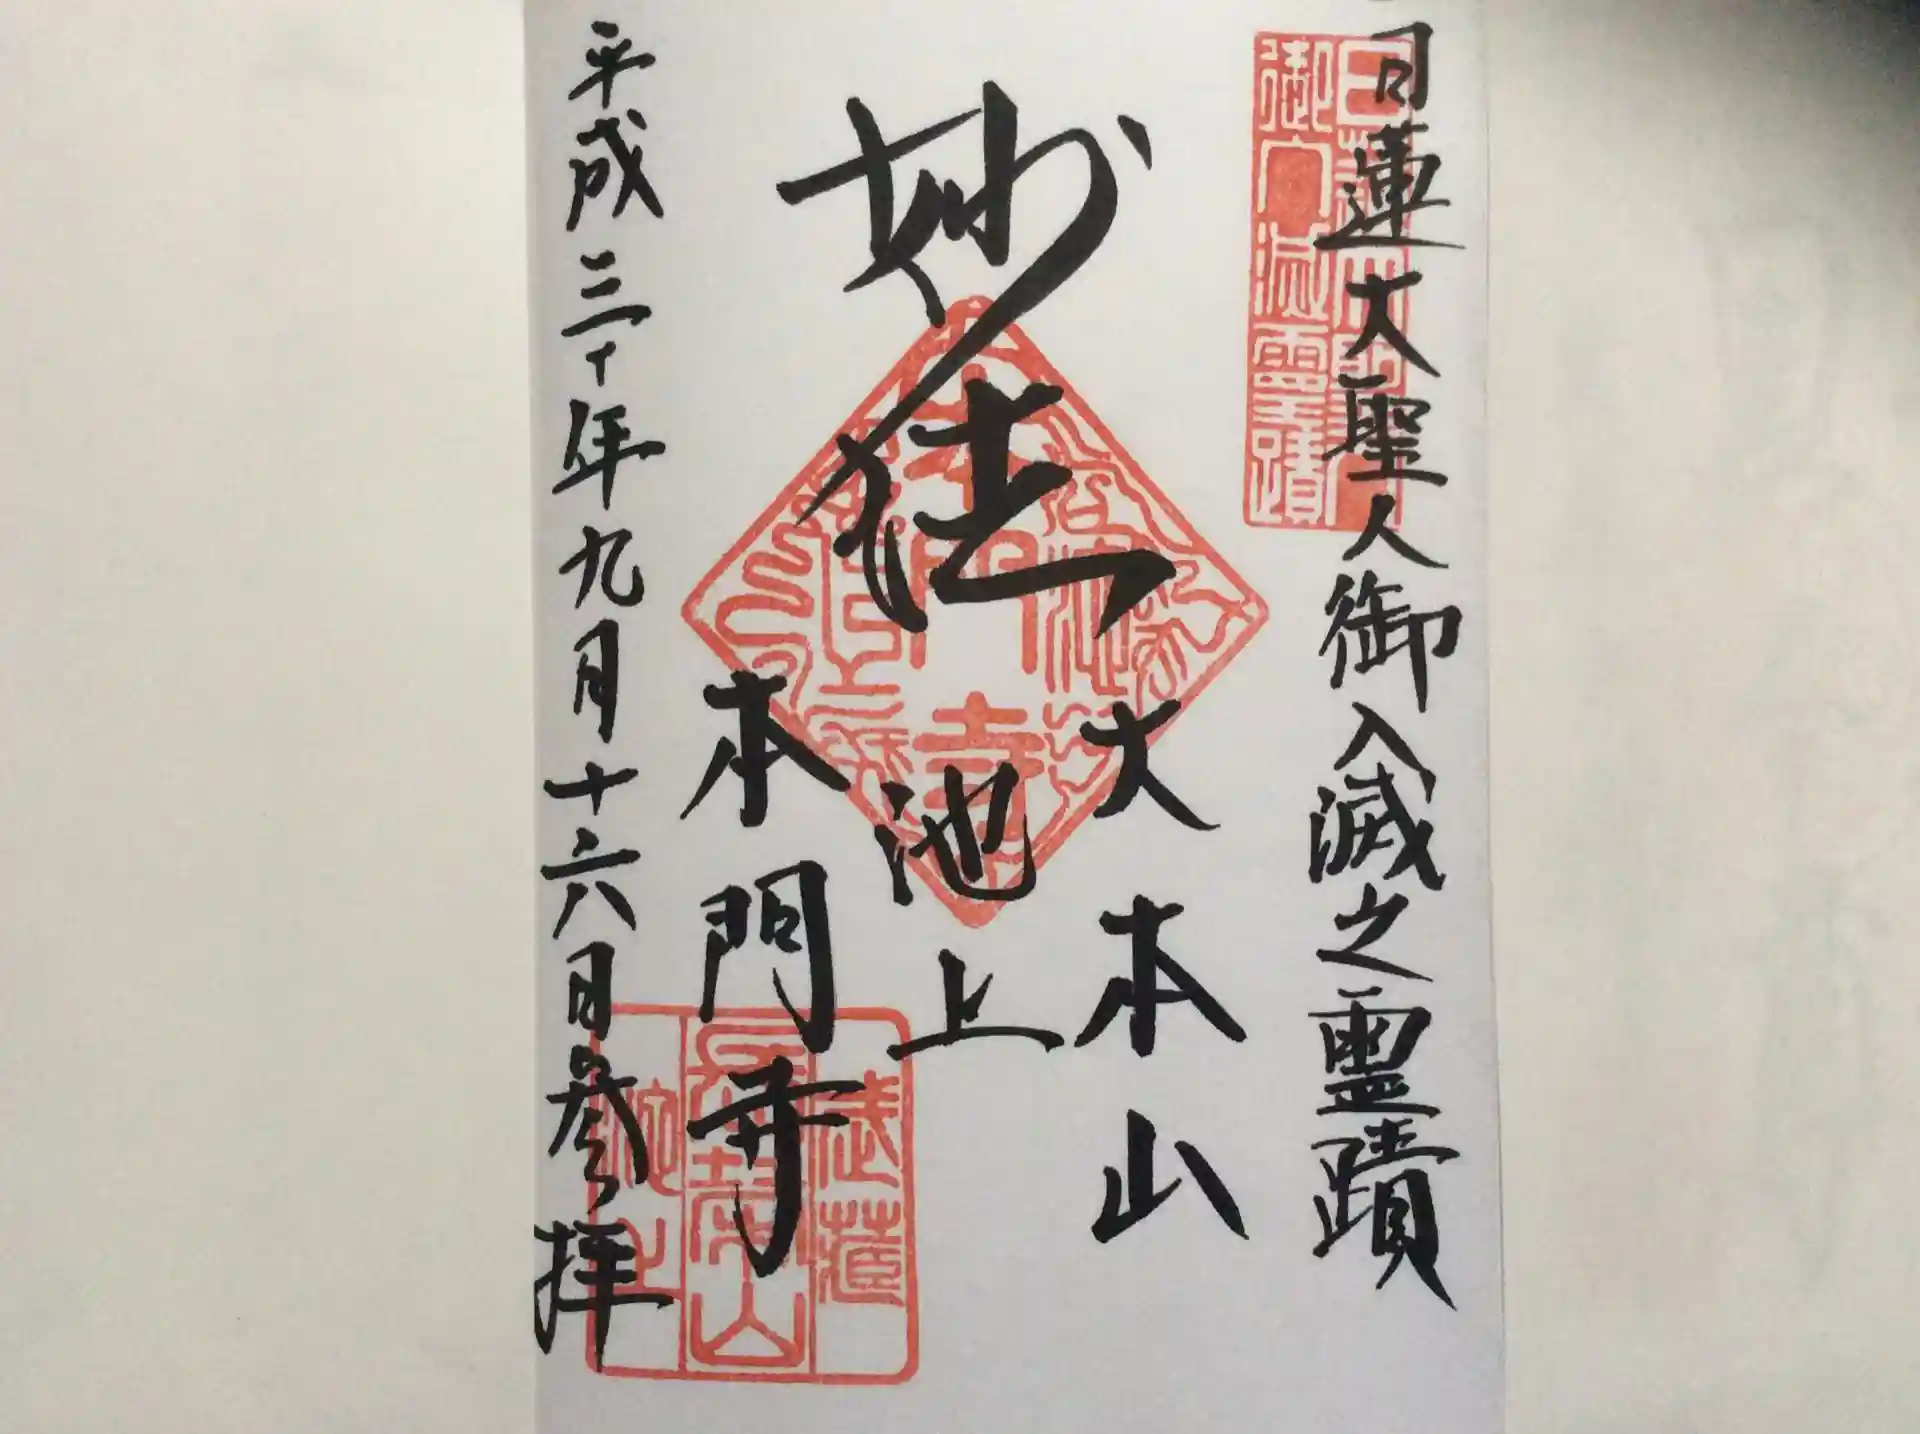 日蓮大聖人御入滅之霊蹟
日蓮大聖人
御入滅霊蹟
妙法
大本山
池上
本門寺
本門寺
武蔵
長榮山
池上
平成三十年九月十六日参拝